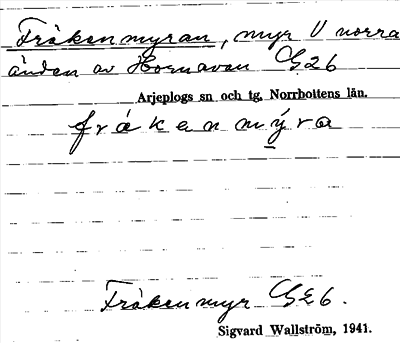 Fräkenmyran, myr V norra
änden av Hornavan GÄ6
Arjeplogs sn och tg, Norrbottens län.
frákenmýra
Fräkenmyr GÄ6.
Sigvard Wallström, 1941.